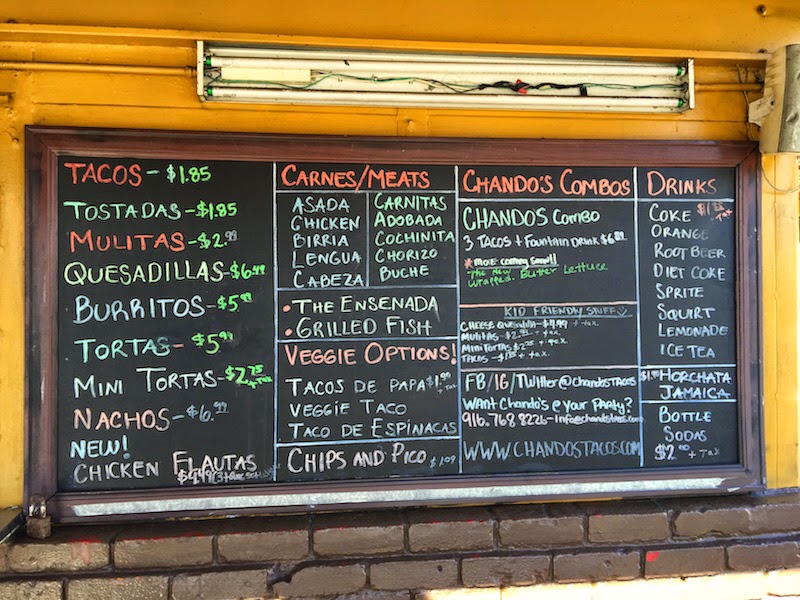 TACOS - $1.85
TOSTADAS - $1.85
MULITAS - $2.99
QUESADILLAS - $6.49
BURRITOS - $5.99
TORTAS - $5.99
MINI TORTAS - $2.75
+ TAX
NACHOS - $6.99
NEW!
CHICKEN FLAUTAS
$4.49
CARNES/MEATS
ASADA
CHICKEN
BIRRIA
LENGUA
CABEZA
CARNITAS
ADOBADA
COCHINITA
CHORIZO
BUCHE
• THE ENSENADA
• GRILLED FISH
VEGGIE OPTIONS!
TACOS DE PAPA $1.99
+ TAX
VEGGIE TACO
TACO DE ESPINACAS
CHIPS AND PICO $1.09
CHANDO'S COMBOS
CHANDO'S COMBO
3 TACOS + FOUNTAIN DRINK
* MORE COMING SOON!!
The New
Wrapped. Butter Lettuce
KID FRIENDLY STUFF
CHEESE QUESADILLA - $4.99 + tax
MULITAS - $2.99 + tax
MINI TORTAS $2.75 + tax
TACOS - + tax
FB/IG/TWITTER@CHANDOSTACOS
WANT CHANDO'S @ YOUR PARTY?
916.768.8226 - INFO@CHANDOSTACOS.COM
WWW.CHANDOSTACOS.COM
DRINKS
COKE
+ TAX
ORANGE
ROOT BEER
DIET COKE
SPRITE
SQUIRT
LEMONADE
ICE TEA
HORCHATA
JAMAICA
BOTTLE
SODAS
$2.00 + TAX